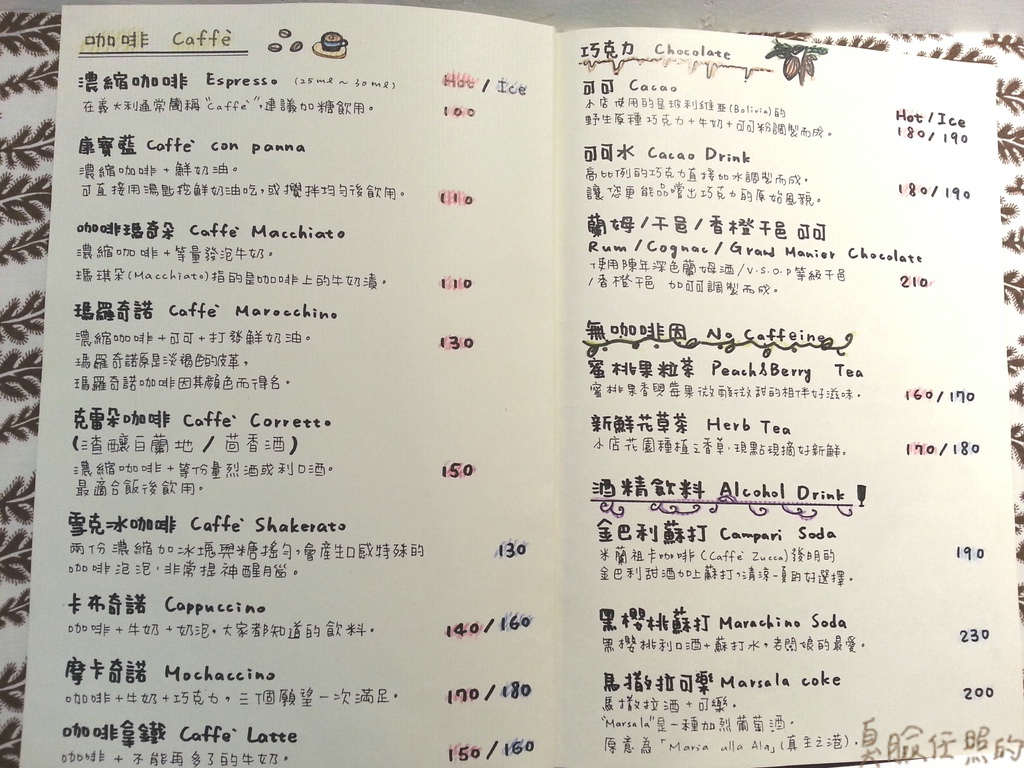 咖啡 Caffè
濃縮咖啡 Espresso (25ml~30ml) Hot/Ice
在義大利通常簡稱"Caffè",建議加糖飲用。 100
康寶藍 Caffè con panna
濃縮咖啡+鮮奶油。
可直接用湯匙挖鮮奶油吃,或攪拌均勻後飲用。 110
咖啡瑪奇朵 Caffè Macchiato
濃縮咖啡+等量發泡牛奶。
瑪琪朵(Macchiato)指的是咖啡上的牛奶漬。 110
瑪羅奇諾 Caffè Marocchino
濃縮咖啡+可可+打發鮮奶油。 130
瑪羅奇諾原是淡褐色的皮革,
瑪羅奇諾咖啡因其顏色而得名。
克雷朵咖啡 Caffè Corretto
(渣釀白蘭地/茴香酒)
濃縮咖啡+等份量烈酒或利口酒。 150
最適合飯後飲用。
雪克冰咖啡 Caffè Shakerato
兩份濃縮加冰塊與糖搖勻,會產生口感特殊的 130
咖啡泡泡,非常提神醒腦。
卡布奇諾 Cappuccino
咖啡+牛奶+奶泡,大家都知道的飲料。 140/160
摩卡奇諾 Mochaccino
咖啡+牛奶+巧克力,三個願望一次滿足。 170/180
咖啡拿鐵 Caffè Latte
咖啡+不能再多了的牛奶。 150/160
巧克力 Chocolate
可可 Cacao
小店使用的是玻利維亞(Bolivia)的 Hot/Ice
野生原種巧克力+牛奶+可可粉調製而成。 180/190
可可水 Cacao Drink
高比例的巧克力直接加水調製而成,
讓您更能品嚐出巧克力的原始風貌。 180/190
蘭姆/干邑/香橙干邑可可
Rum/Cognac/Grand Manier Chocolate
使用陳年深色蘭姆酒/V.S.O.P等級干邑
/香橙干邑 加可可調製而成。 210
無咖啡因 No Caffeine
蜜桃果粒茶 Peach&Berry Tea
蜜桃果香與莓果微酸微甜的相伴好滋味。 160/170
新鮮花草茶 Herb Tea
小店花園種植之香草,現點現摘好新鮮。 170/180
酒精飲料 Alcohol Drink
金巴利蘇打 Campari Soda
米蘭祖卡咖啡(Caffè Zucca)發明的 190
金巴利甜酒加上蘇打,清涼一夏的好選擇。
黑櫻桃蘇打 Marachino Soda
黑櫻桃利口酒+蘇打水,老闆娘的最愛。 230
馬撒拉可樂 Marsala coke
馬撒拉酒+可樂。 200
"Marsala"是一種加烈葡萄酒。
原意為「Maria alla Ala」(真主之港).
臭臉任照的